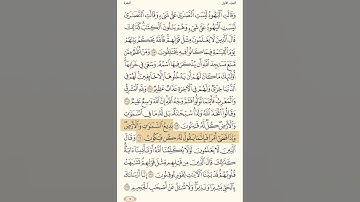 وَقَالَتِ ٱلْيَهُودُ لَيْسَتِ ٱلنَّصَٰرَىٰ عَلَىٰ شَىْءٍ وَقَالَتِ ٱلنَّصَٰرَىٰ
لَيْسَتِ ٱلْيَهُودُ عَلَىٰ شَىْءٍ وَهُمْ يَتْلُونَ ٱلْكِتَٰبَ كَذَٰلِكَ
قَالَ ٱلَّذِينَ لَا يَعْلَمُونَ مِثْلَ قَوْلِهِمْ فَٱللَّهُ يَحْكُمُ بَيْنَهُمْ
يَوْمَ ٱلْقِيَٰمَةِ فِيمَا كَانُوا۟ فِيهِ يَخْتَلِفُونَ وَمَنْ أَظْلَمُ
مِمَّن مَّنَعَ مَسَٰجِدَ ٱللَّهِ أَن يُذْكَرَ فِيهَا ٱسْمُهُۥ وَسَعَىٰ فِى خَرَابِهَآ
أُو۟لَٰٓئِكَ مَا كَانَ لَهُمْ أَن يَدْخُلُوهَآ إِلَّا خَآئِفِينَ لَهُمْ فِى
ٱلدُّنْيَا خِزْىٌ وَلَهُمْ فِى ٱلْءَاخِرَةِ عَذَابٌ عَظِيمٌ وَلِلَّهِ ٱلْمَشْرِقُ
وَٱلْمَغْرِبُ فَأَيْنَمَا تُوَلُّوا۟ فَثَمَّ وَجْهُ ٱللَّهِ إِنَّ ٱللَّهَ وَٰسِعٌ عَلِيمٌ
وَقَالُوا۟ ٱتَّخَذَ ٱللَّهُ وَلَدًا سُبْحَٰنَهُۥ بَل لَّهُۥ مَا فِى ٱلسَّمَٰوَٰتِ
وَٱلْأَرْضِ كُلٌّ لَّهُۥ قَٰنِتُونَ بَدِيعُ ٱلسَّمَٰوَٰتِ وَٱلْأَرْضِ
وَإِذَا قَضَىٰٓ أَمْرًا فَإِنَّمَا يَقُولُ لَهُۥ كُن فَيَكُونُ وَقَالَ
ٱلَّذِينَ لَا يَعْلَمُونَ لَوْلَا يُكَلِّمُنَا ٱللَّهُ أَوْ تَأْتِينَآ ءَايَةٌ
كَذَٰلِكَ قَالَ ٱلَّذِينَ مِن قَبْلِهِم مِّثْلَ قَوْلِهِمْ تَشَٰبَهَتْ
قُلُوبُهُمْ قَدْ بَيَّنَّا ٱلْءَايَٰتِ لِقَوْمٍ يُوقِنُونَ إِنَّآ أَرْسَلْنَٰكَ
بِٱلْحَقِّ بَشِيرًا وَنَذِيرًا وَلَا تُسْـَٔلُ عَنْ أَصْحَٰبِ ٱلْجَحِيمِ